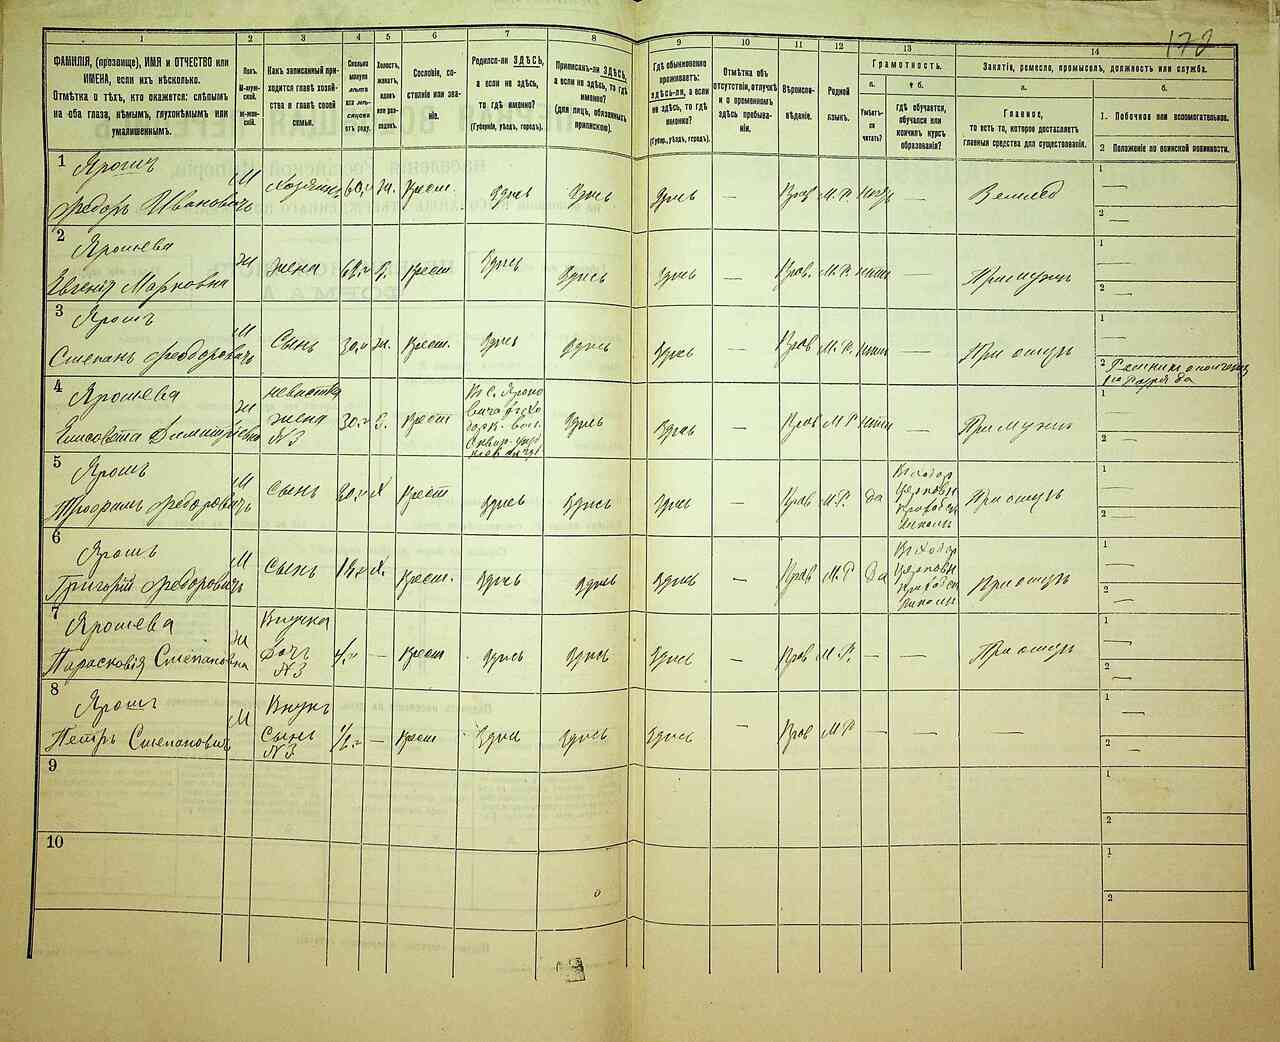 172
1 2 3 4 5 6 7 8 9 10 11 12 13 14
ФАМИЛІЯ, (прозвище), ИМЯ и ОТЧЕСТВО или
ИМЕНА, если ихъ нѣсколько.
Отмѣтка о тѣхъ, кто окажется: слѣпымъ
на оба глаза, нѣмымъ, глухонѣмымъ или
умалишеннымъ.
Полъ.
М-муж-
ской.
Ж-жен-
скій.
Какъ записанный при-
ходится главѣ хозяй-
ства и главѣ своей
семьи.
Сколько
минуло
лѣтъ
или мѣ-
сяцевъ
отъ роду.
Холостъ,
женатъ,
вдовъ
или раз-
веденъ.
Сословіе, со-
стояніе или зва-
ніе.
Родился-ли ЗДѢСЬ,
а если не здѣсь,
то гдѣ именно?
(Губернія, уѣздъ, городъ).
Приписанъ-ли ЗДѢСЬ,
а если не здѣсь, то гдѣ
именно?
(для лицъ, обязанныхъ
припискою).
Гдѣ обыкновенно
проживаетъ:
здѣсь-ли, а если
не здѣсь, то гдѣ
именно?
(Губер., уѣздъ, городъ).
Отмѣтка объ
отсутствіи, отлучкѣ
и о временномъ
здѣсь пребыва-
ніи.
Вѣроиспо-
вѣданіе.
Родной
языкъ.
Грамотность.
а.
Умѣетъ-
ли
читать?
б.
гдѣ обучается,
обучался или
кончилъ курсъ
образованія?
Занятіе, ремесло, промыселъ, должность или служба.
а.
Главное,
то есть то, которое доставляетъ
главныя средства для существованія.
б.
1. Побочное или вспомогательное.
2 Положеніе по воинской повинности.
1 Ярошъ
Федоръ Ивановичъ М Хозяинъ ж. Крест. Здѣсь Здѣсь Здѣсь — Прав М.Р. — Землед 1 — 2 —
2 Ярошева
Евгенія Марковна ж жена з. Крест Здѣсь Здѣсь Здѣсь — Прав. М.Р. — При мужѣ 1 — 2 —
3 Ярошъ
Степанъ Федоровичъ М Сынъ 30 ж. Крест. Здѣсь Здѣсь Здѣсь — Прав М.Р. — При отцѣ 1 2 Ратникъ ополченія
4 Ярошева
Елисовета Димитріевна ж невѣстка
жена
№3 30 з. Крест Здѣсь Здѣсь — Прав М.Р — При мужѣ 1 — 2 —
5 Ярошъ
Трофимъ Федоровичъ М Сынъ 20 х Крест Здѣсь Здѣсь Здѣсь — Прав М.Р. да При отцѣ 1 — 2 —
6 Ярошъ
Григорій Федоровичъ М Сынъ х. Крест. Здѣсь Здѣсь Здѣсь — Прав М.Р да При отцѣ 1 — 2 —
7 Ярошева
Парасковія Степановна ж Внучка
дочь
№3 — Крест Здѣсь Здѣсь Здѣсь — Прав М.Р. — — При отцѣ 1 — 2 —
8 Ярошъ
Петръ Степановичъ М Внукъ
Сынъ
№3 — Крест Здѣсь Здѣсь Здѣсь — Прав М.Р — — — 1 — 2 —
9 1 2
10 1 2